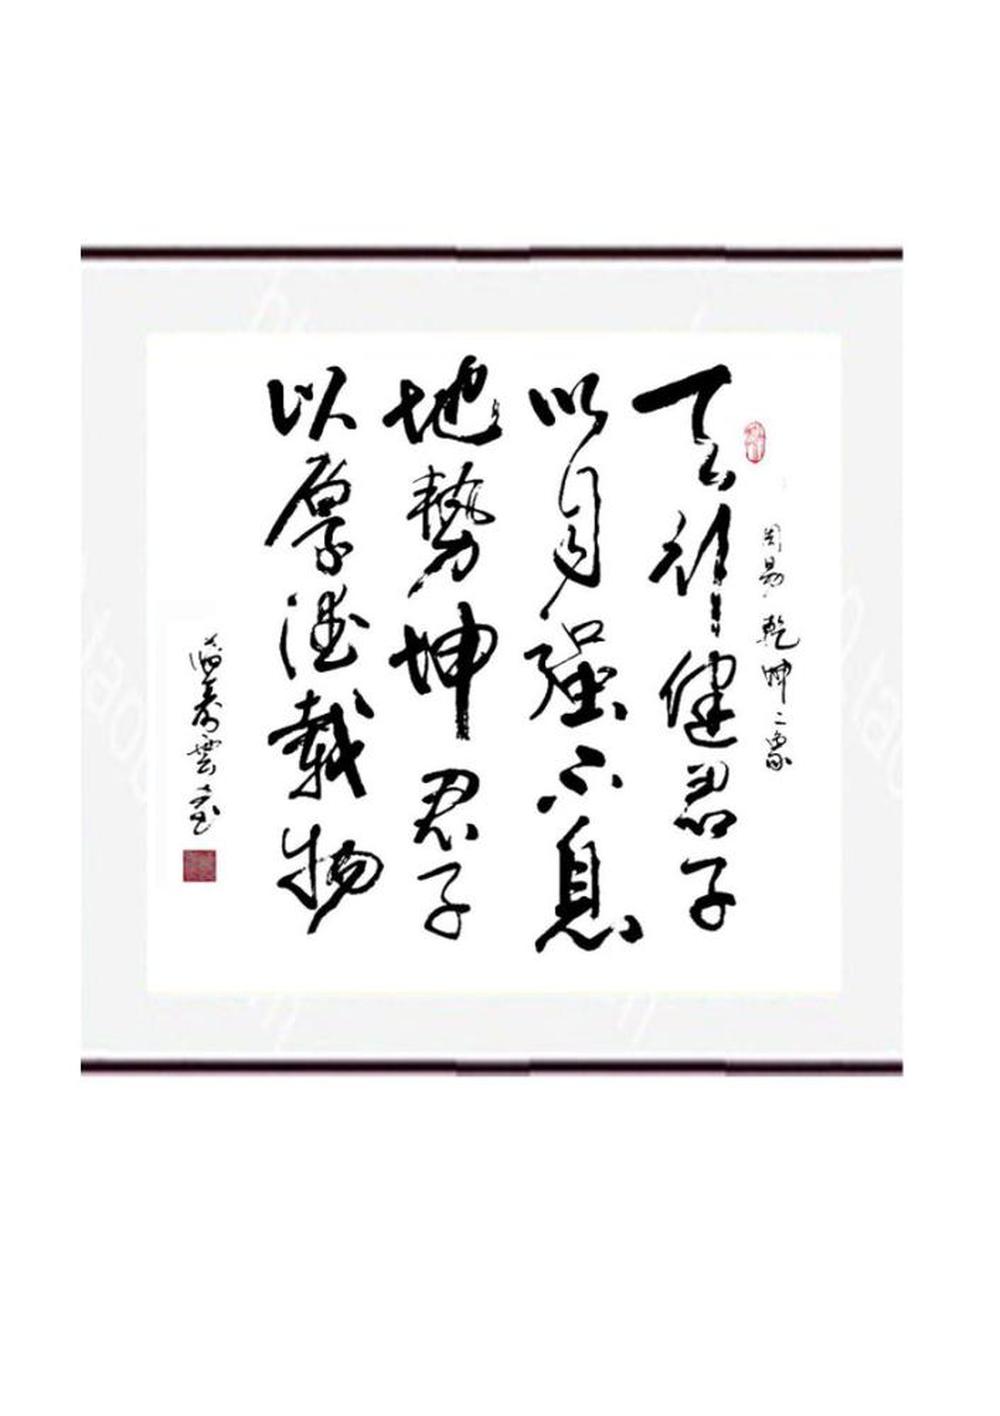 周易乾坤二象
天行健君子
以自强不息
地势坤君子
以厚德载物
寿云堂